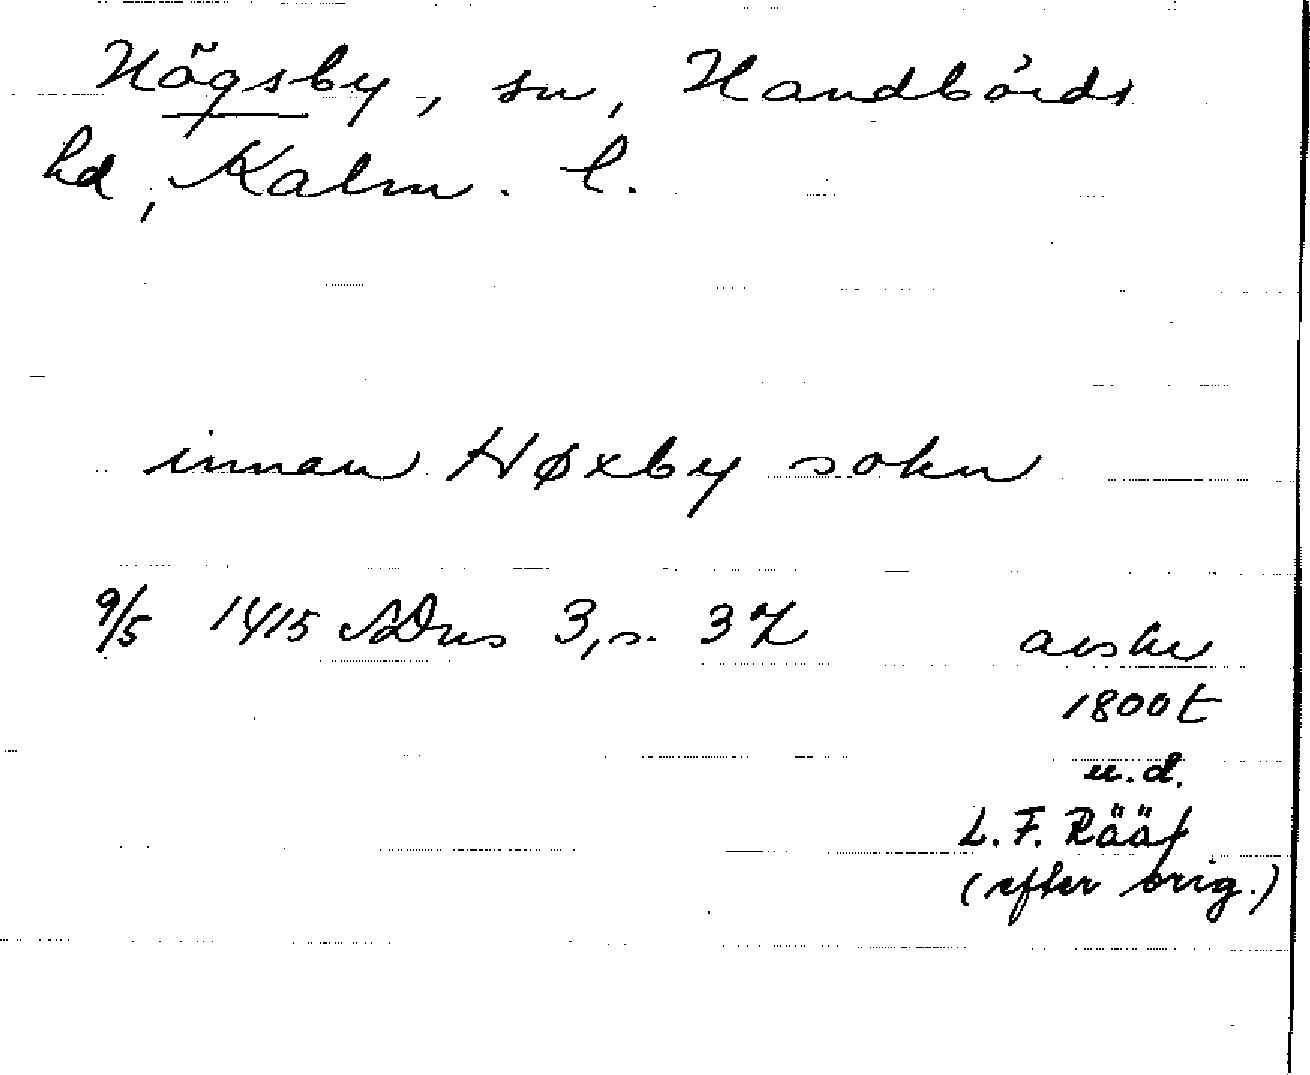 Högsby, sn, Handbörds
hd, Kalm. l.
innan Høxby sokn
9/5 1415 SDns 3, s. 37
avskr
1800t
u.d.
L. F. Rääf
(efter orig.)